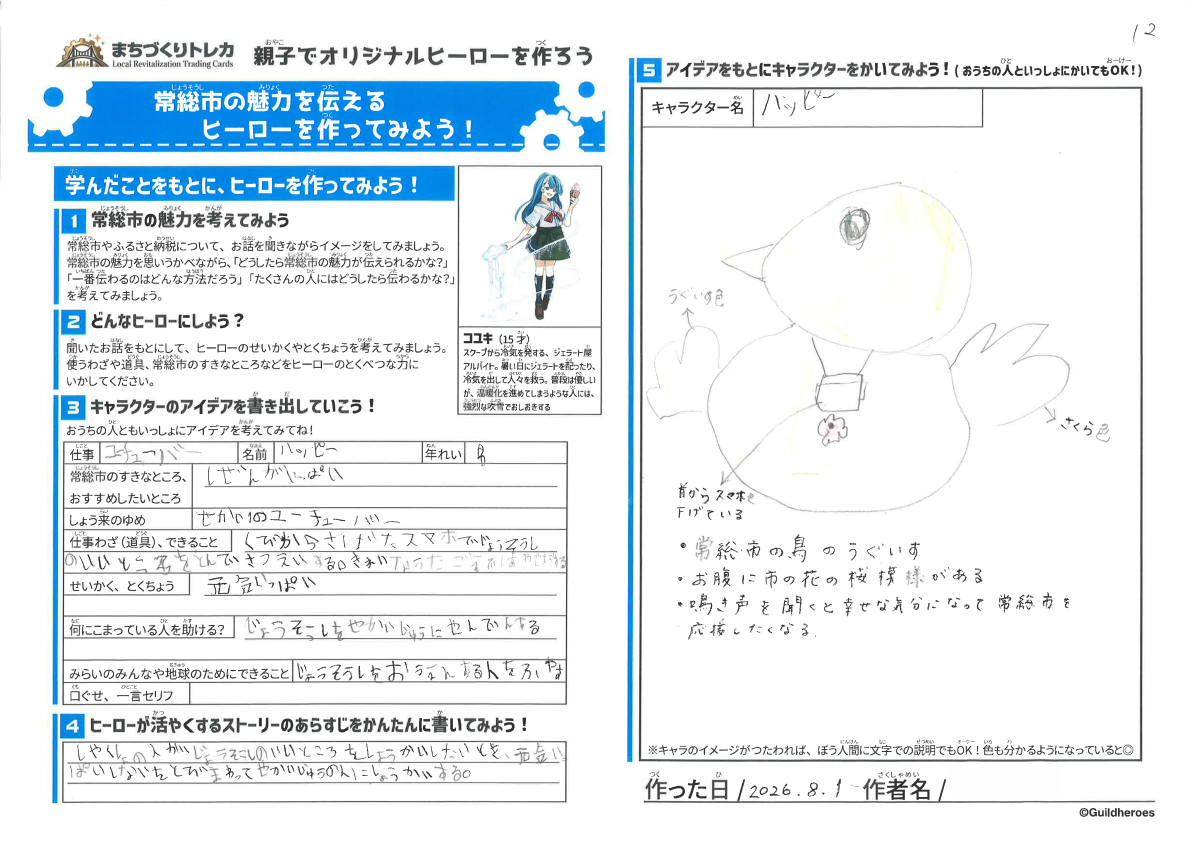 12
まちづくりトレカ
Local Revitalization Trading Cards
親子でオリジナルヒーローを作ろう
常総市の魅力を伝える
ヒーローを作ってみよう！
学んだことをもとに、ヒーローを作ってみよう！
1 常総市の魅力を考えてみよう
常総市やふるさと納税について、お話を聞きながらイメージをしてみましょう。
常総市の魅力を思いうかべながら、「どうしたら常総市の魅力が伝えられるかな？」
「一番伝わるのはどんな方法だろう」「たくさんの人にはどうしたら伝わるかな？」
を考えてみましょう。
2 どんなヒーローにしよう？
聞いたお話をもとにして、ヒーローのせいかくやとくちょうを考えてみましょう。
使うわざや道具、常総市のすきなところなどをヒーローのとくべつな力に
いかしてください。
ココキ（15才）
スクープから冷気を発する、ジェラート屋
アルバイト。暑い日にジェラートを配ったり、
冷気を出して人々を救う。普段は優しい
が、温暖化を進めてしまうような人には、
強烈な吹雪でおしおきする
3 キャラクターのアイデアを書き出していこう！
おうちの人ともいっしょにアイデアを考えてみてね！
仕事 ユーチューバー 名前 ハッピー 年れい
常総市のすきなところ、
おすすめしたいところ
しぜんがいっぱい
しょう来のゆめ せかい1のユーチューバー
仕事わざ（道具）、できること くびからさげたスマホでじょうそうし
のいいところをとんで
せいかく、とくちょう 元気いっぱい
何にこまっている人を助ける？ じょうそうしをせかいじゅうにせんでんする
みらいのみんなや地球のためにできること じょうそうしをおうえんする人をふやす
口ぐせ、一言セリフ
4 ヒーローが活やくするストーリーのあらすじをかんたんに書いてみよう！
しやくしょの人がじょうそうしのいいところをしょうかいしたいとき、元気い
ぱいしないをとびまわってせかいじゅうの人にしょうかいする。
5 アイデアをもとにキャラクターをかいてみよう！（おうちの人といっしょにかいてもOK！）
キャラクター名 ハッピー
うぐいす色
さくら色
首からスマホを
下げている
・常総市の鳥のうぐいす
・お腹に市の花の桜模様がある
・鳴き声を聞くと幸せな気分になって常総市を
応援したくなる.
※キャラのイメージがつたわれば、ぼう人間に文字での説明でもOK！色も分かるようになっていると◎
作った日 / 2026.8.1 作者名 /
©Guildheroes